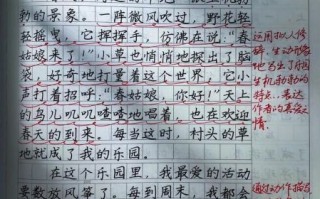 勃的景象。一阵微风吹过，野花轻
轻摇曳，它挥挥手，仿佛在说，"春
姑娘来了！"小草也悄悄地探出了脑
袋，好奇地打量着这个世界，它小
声打着招呼，"春姑娘，你好！"天上
的鸟儿叽叽喳喳地唱着，也在欢迎
春天的到来，每当这时，村头的草
地就成了我的乐园。
在这个乐园里，我最爱的活动
要数放风筝了。每到周末，我都会
运用拟人修
辞，生动形象
地写出了
生机勃勃的
特点，表达
作者的喜爱之
情。
通过动作描写